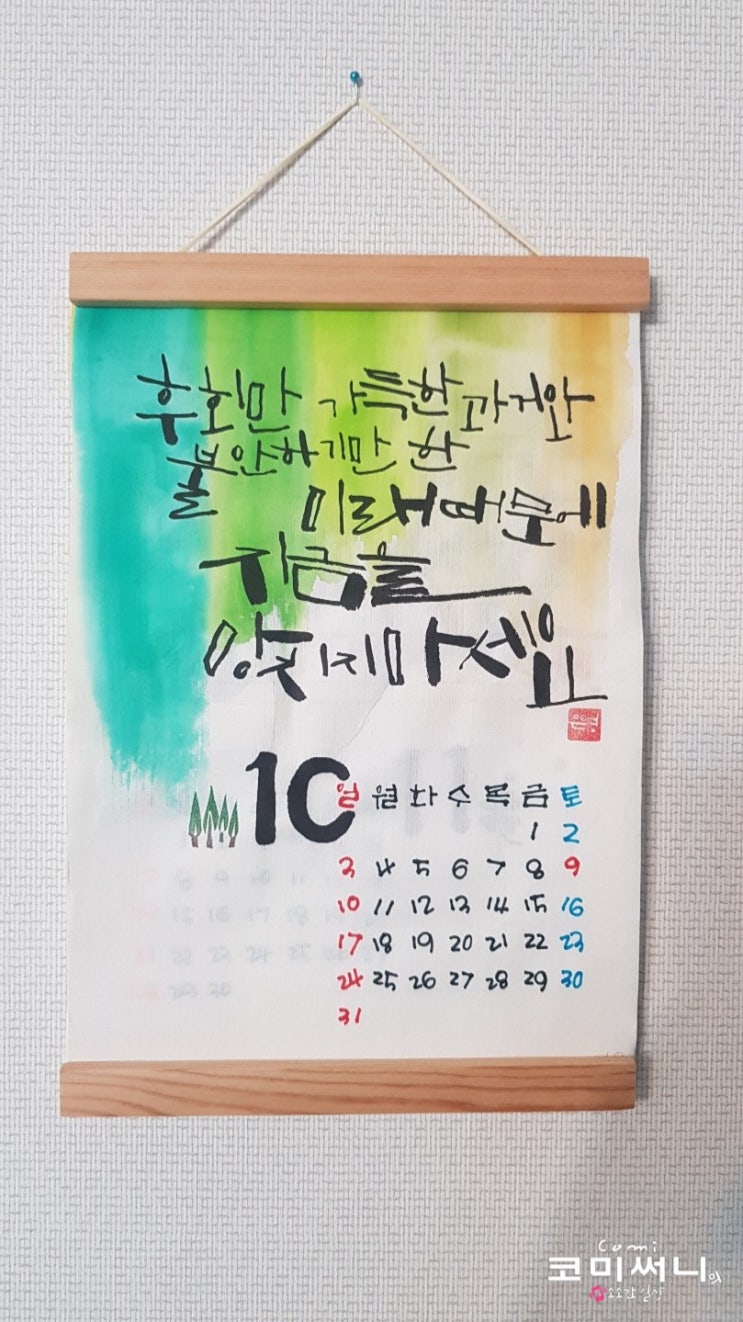 후회만 가득한 과거와
불안하기만 한
미래때문에
지금을
잊지마세요
10
일 월 화 수 목 금 토
1 2
3 4 5 6 7 8 9
10 11 12 13 14 15 16
17 18 19 20 21 22 23
24 25 26 27 28 29 30
31
Comi
코미써니의
소소한 일상